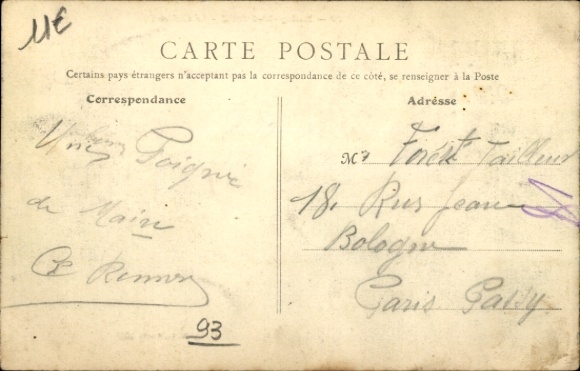 11€
CARTE POSTALE
Certains pays étrangers n'acceptant pas la correspondance de ce côté, se renseigner à la Poste
Correspondance
Une Poignée
de Main
93
Adrésse
Mr Forest Tailleur
18, Rue Jean
Bologne
Paris Passy